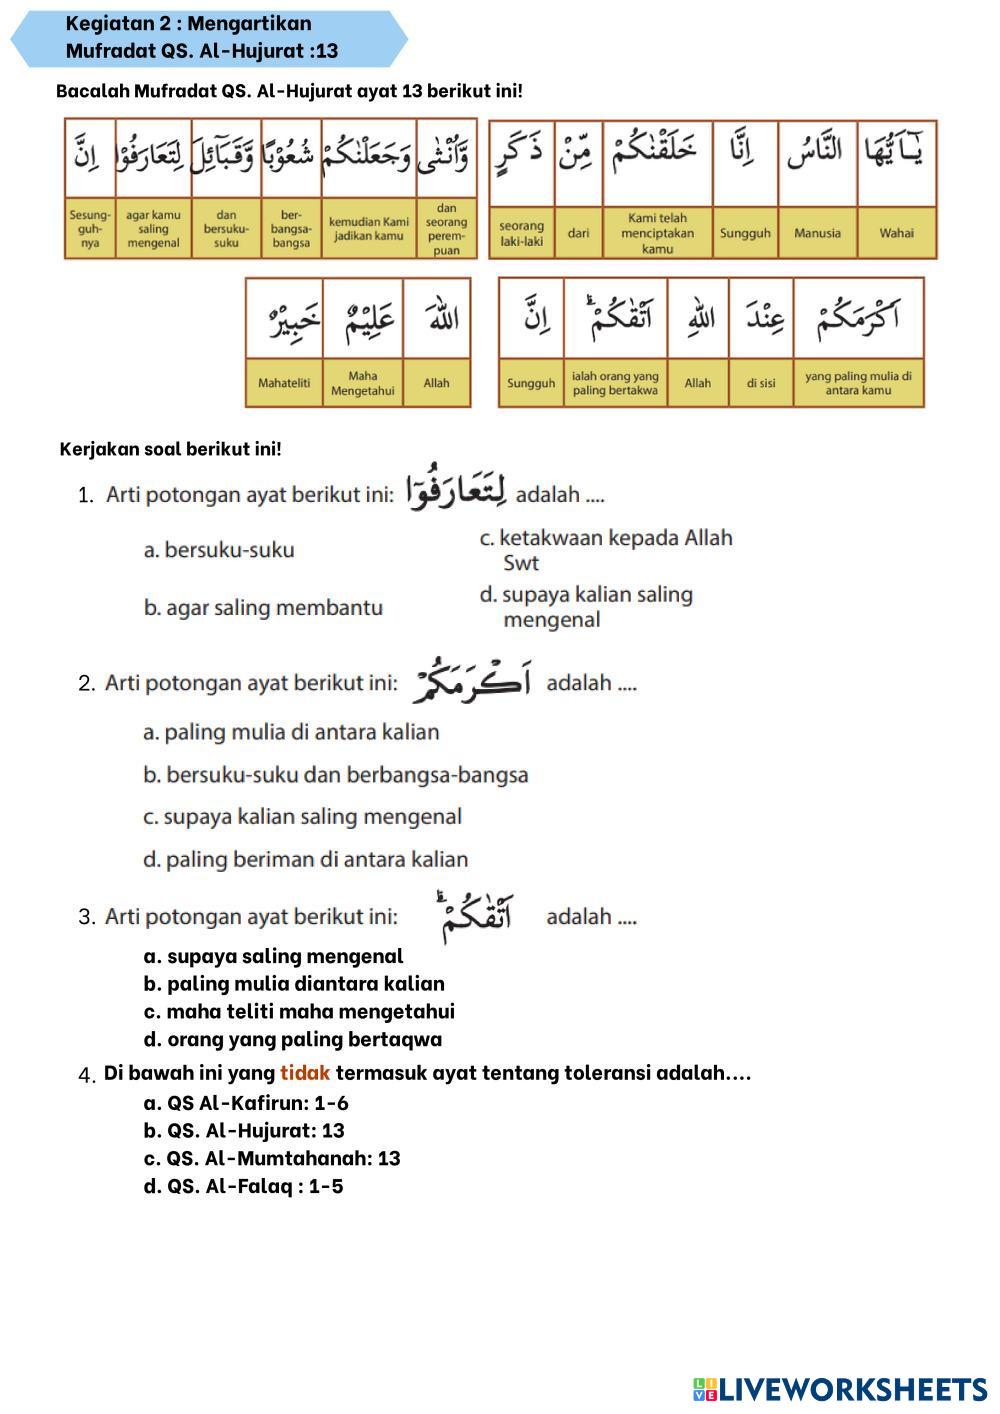 Kegiatan 2 : Mengartikan
Mufradat QS. Al-Hujurat :13
Bacalah Mufradat QS. Al-Hujurat ayat 13 berikut ini!
يٰٓاَيُّهَا النَّاسُ اِنَّا خَلَقْنٰكُمْ مِّنْ ذَكَرٍ
Wahai
Manusia
Sungguh
Kami telah
menciptakan
kamu
dari
seorang
laki-laki
وَّاُنْثٰى وَجَعَلْنٰكُمْ شُعُوْبًا وَّقَبَاۤئِلَ لِتَعَارَفُوْا اِنَّ
dan
seorang
perem-
puan
kemudian Kami
jadikan kamu
ber-
bangsa-
bangsa
dan
bersuku-
suku
agar kamu
saling
mengenal
Sesung-
guh-
nya
اَكْرَمَكُمْ عِنْدَ اللّٰهِ اَتْقٰىكُمْۗ اِنَّ
yang paling mulia di
antara kamu
di sisi
Allah
ialah orang yang
paling bertakwa
Sungguh
اللّٰهَ عَلِيْمٌ خَبِيْرٌ
Allah
Maha
Mengetahui
Mahateliti
Kerjakan soal berikut ini!
1. Arti potongan ayat berikut ini: لِتَعَارَفُوْٓا adalah ....
a. bersuku-suku
b. agar saling membantu
c. ketakwaan kepada Allah
Swt
d. supaya kalian saling
mengenal
2. Arti potongan ayat berikut ini: اَكْرَمَكُمْ adalah ....
a. paling mulia di antara kalian
b. bersuku-suku dan berbangsa-bangsa
c. supaya kalian saling mengenal
d. paling beriman di antara kalian
3. Arti potongan ayat berikut ini: اَتْقٰىكُمْۗ adalah ....
a. supaya saling mengenal
b. paling mulia diantara kalian
c. maha teliti maha mengetahui
d. orang yang paling bertaqwa
4. Di bawah ini yang tidak termasuk ayat tentang toleransi adalah....
a. QS Al-Kafirun: 1-6
b. QS. Al-Hujurat: 13
c. QS. Al-Mumtahanah: 13
d. QS. Al-Falaq : 1-5
LIVEWORKSHEETS